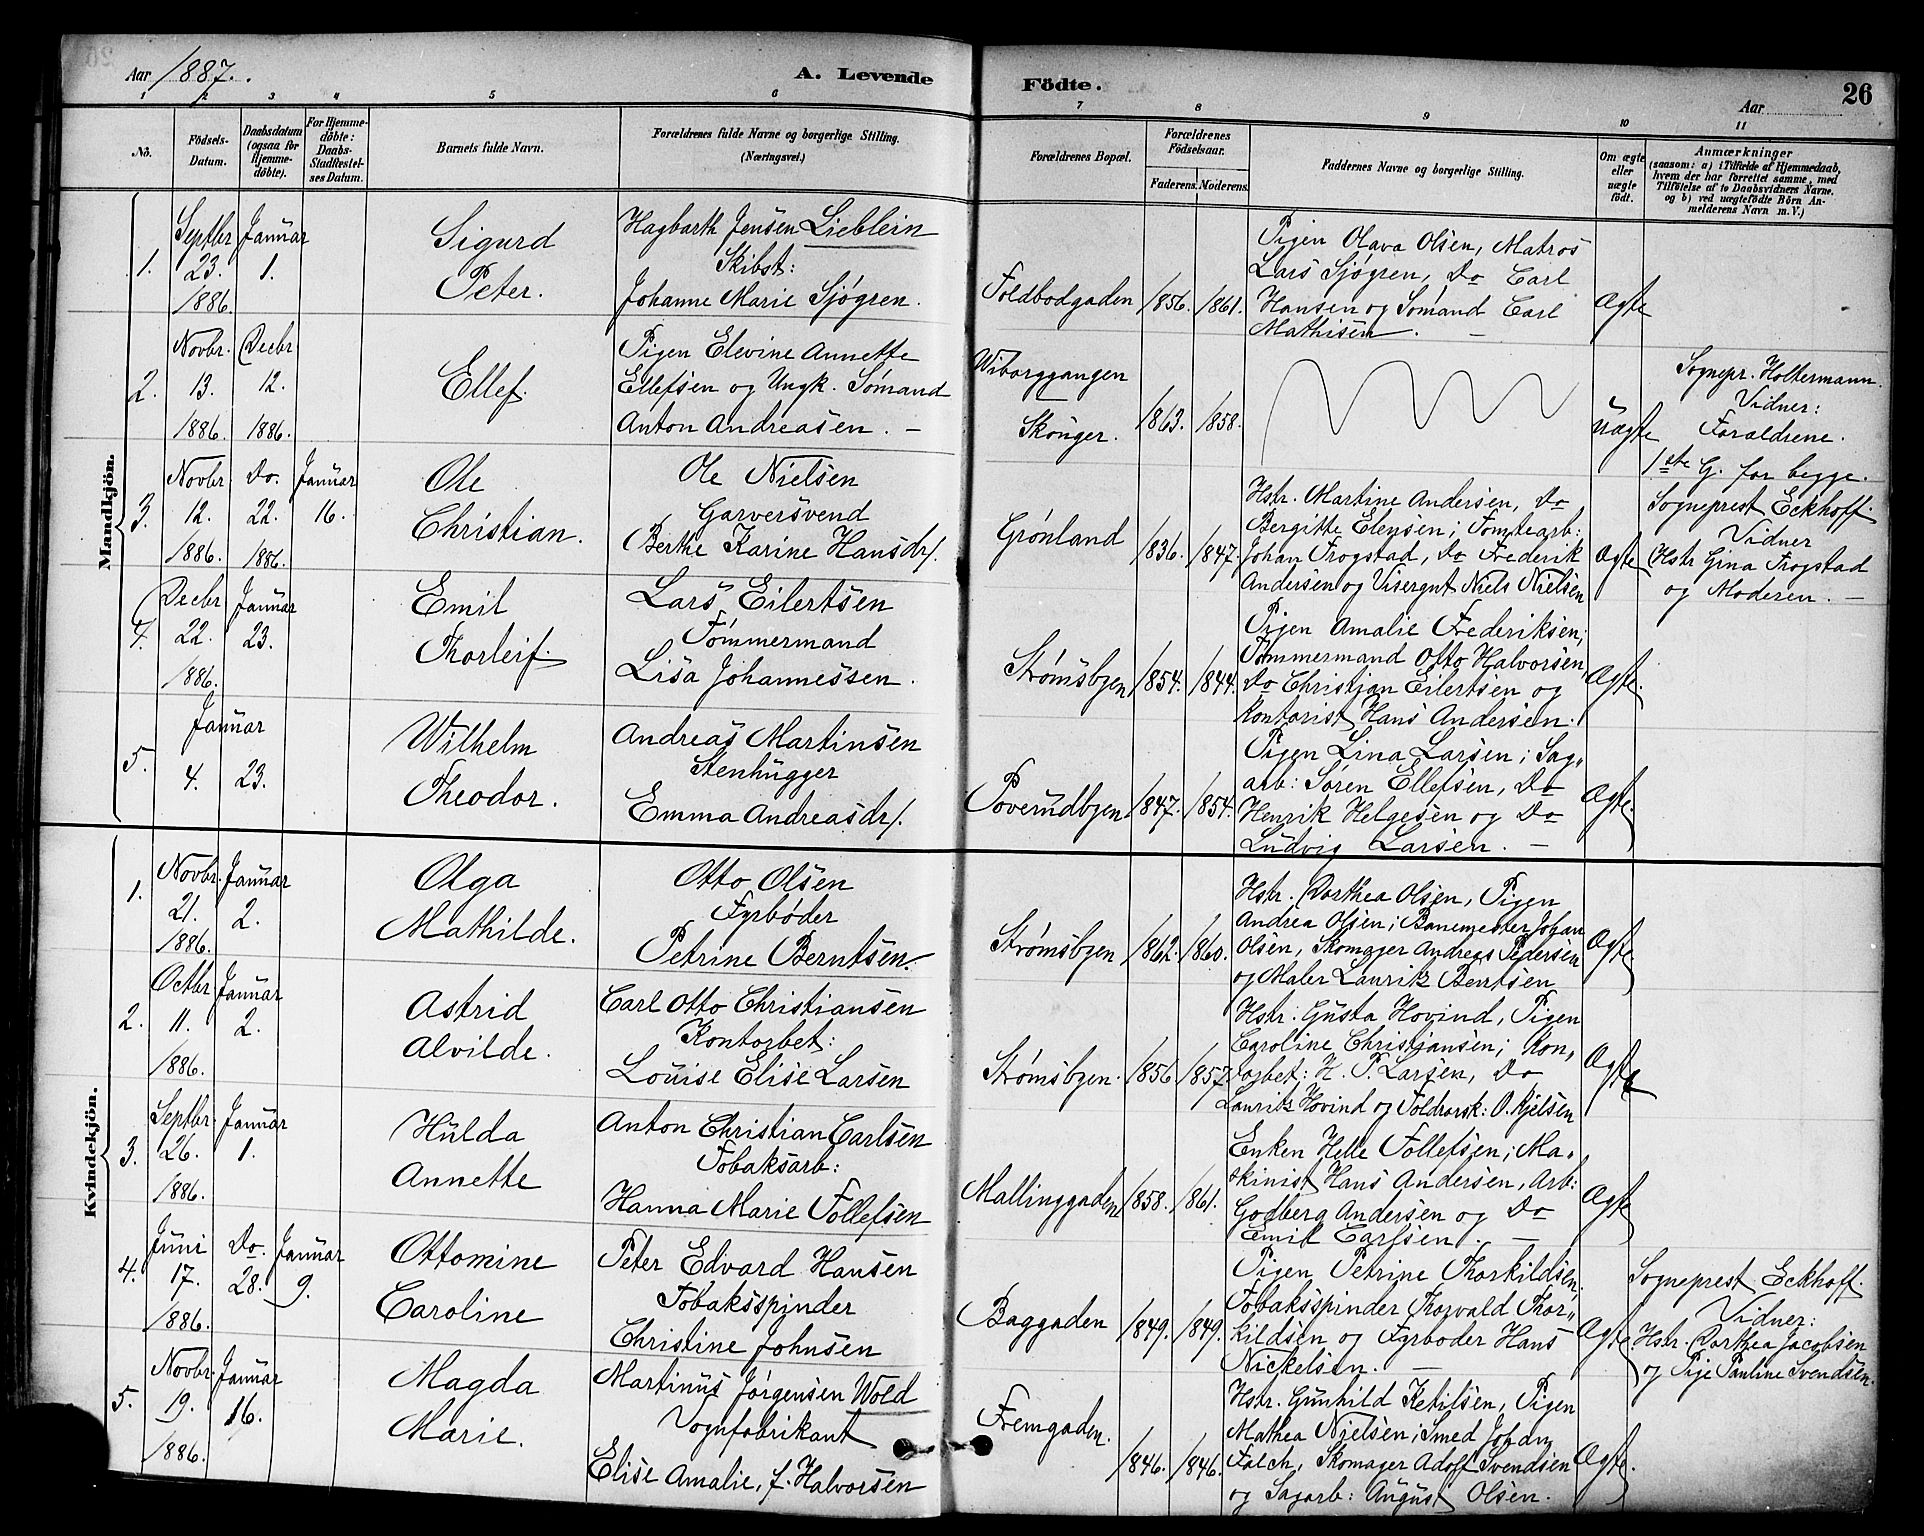 Aar 1887.
A. Levende
Födte.
Aar
26
1 2 3 4 5 6 7 8 9 10 11
Nô.
Födsels-Datum.
Daabsdatum (ogsaa for Hjemme-döbte).
For Hjemme-döbte: Daabs-Stadfæstel-ses Datum.
Barnets fulde Navn.
Forældrenes fulde Navne og borgerlige Stilling. (Næringsvei.)
Forældrenes Bopæl.
Forældrenes Födselsaar.
Faderens. Moderens.
Faddernes Navne og borgerlige Stilling.
Om ægte eller uægte födt.
Anmærkninger
(saasom: a) i Tilfælde af Hjemmedaab,
hvem der har forrettet samme, med
Tilföielse af to Daabsvidners Navne,
og b) ved uægtefödte Börn An-
melderens Navn m. V.)
Mandkjön.
1.
Septbr 23. 1886.
Januar 1.
Sigurd
Peter.
Hagbarth Jensen Lieblein
Skibst:
Johanne Marie Sjøgren.
Toldbodgaden
1856. 1861.
Pigen Olava Olsen, Matros
Lars Sjøgren, Do Carl
Hansen og Sømand Carl
Mathisen. —
Ægte
2.
Novbr. 13. 1886.
Decbr 12. 1886.
Ellef.
Pigen Elevine Annette
Ellefsen og Ungk. Sømand
Anton Andreasen. —
Wiborggangen
Skouger.
1863. 1858.
Uægte
Sognepr. Holtermann.
Vidner:
Forældrene.
1ste G. for begge.
3.
Novbr. 12. 1886.
Do. 22. 1886.
Januar 16.
Ole
Christian.
Ole Nielsen
Garversvend
Berthe Karine Hansdr/.
Grønland
1836. 1847.
Hstr. Martine Andersen, Do
Bergitte Elensen; Tomtearb:
Johan Frogstad, Do Frederik
Andersen og Visergut Niels Nielsen
Ægte
Sogneprest Eckhoff.
Vidner
Hstr Gina Frogstad
og Moderen. —
4.
Decbr 22. 1886.
Januar 23.
Emil
Thorleif.
Lars Eilertsen
Tømmermand
Lisa Johannessen.
Strømsbyen
1854. 1844.
Pigen Amalie Frederiksen;
Tømmermand Otto Halvorsen,
Do Christian Eilertsen og
Kontorist Hans Andersen.
Ægte.
5.
Januar
4. 23.
Wilhelm
Theodor.
Andreas Martinsen
Stenhugger
Emma Andreasdr/.
Poverudbyen
1847. 1854.
Pigen Lina Larsen; Sag„
arb: Søren Ellefsen, Do
Henrik Helgesen og Do
Ludvig Larsen. —
Ægte.
Kvindekjön.
1.
Novbr. 21. 1886.
Januar 2.
Olga
Mathilde.
Otto Olsen
Fyrbøder
Petrine Berntsen.
Strømsbyen
1862. 1860.
Hstr. Dorthea Olsen, Pigen
Andrea Olsen; Banemester Johan
Olsen, Skomager Andreas Pedersen
og Maler Lauritz Bentsen
Ægte
2.
Octbr 11. 1886.
Januar 2.
Astrid
Alvilde.
Carl Otto Christiansen
Kontorbet:
Louise Elise Larsen
Strømsbyen.
1856 1857.
Hstr. Gusta Hovind, Pigen
Caroline Christiansen; Kon„
torbet: H. P. Larsen, Do
Lauritz Hovind og Toldrorsk: O. Kjelsen
Ægte
3.
Septbr. 26. 1886.
Januar 1.
Hulda
Annette
Anton Christian Carlsen
Tobaksarb:
Hanna Marie Tollefsen
Mallinggaden
1858. 1861.
Enken Helle Tollefsen; Ma„
skinist Hans Andersen, Arb:
Godberg Andersen og Do
Emil Carlsen. —
Ægte
4.
Juni 17. 1886.
Do. 28.
Januar 9.
Ottomine
Caroline
Peter Edvard Hansen
Tobaksspinder
Christine Johnsen
Baggaden
1849. 1849.
Pigen Petrine Thorkildsen;
Tobaksspinder Thorvald Thor„
kildsen og Fyrbøder Hans
Nickelsen. —
Ægte
Sogneprest Eckhoff.
Vidner:
Hstr. Dorthea Jacobsen
og Pige Pauline Svendsen.
5.
Novbr. 19. 1886.
Januar 16.
Magda
Marie.
Martinus Jørgensen Wold
Vognfabrikant
Elise Amalie, f. Halvorsen
Fremgaden.
1846. 1846.
Hstr. Gunhild Ketilsen, Pigen
Mathea Nielsen; Smed Johan
Falch, Skomager Adolf Svendsen
og Sagarb: August Olsen.
Ægte.